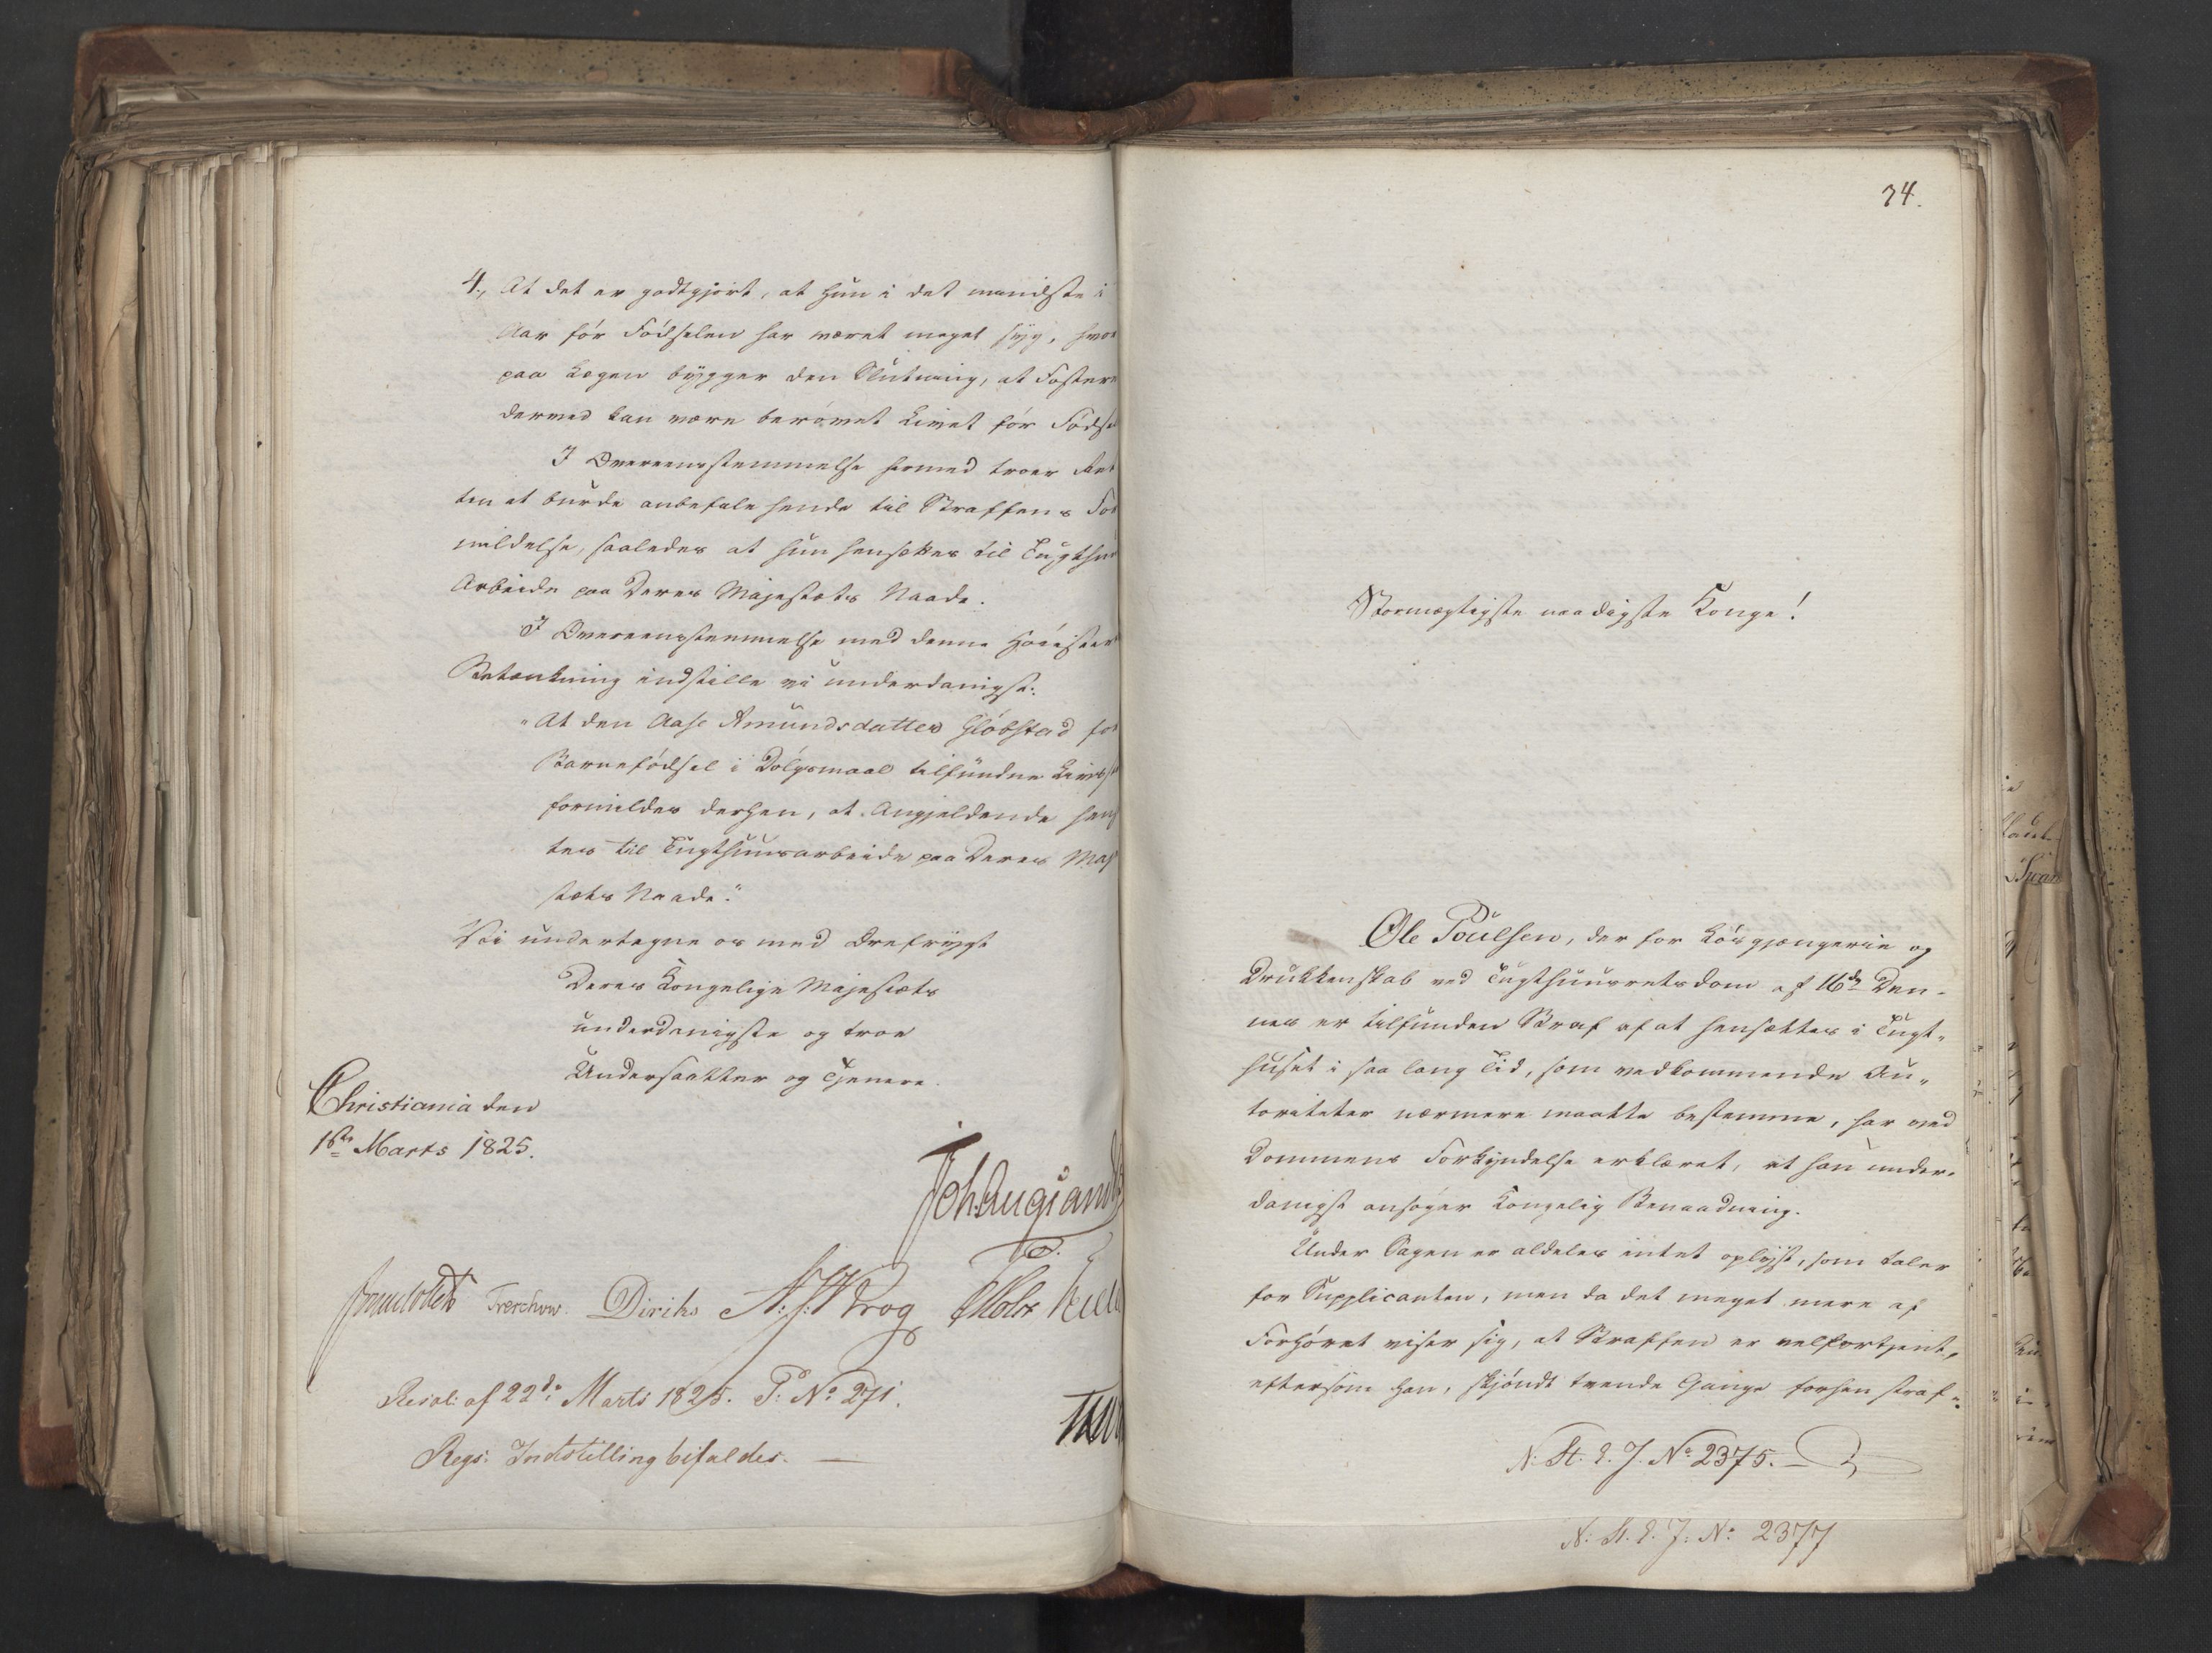 4., At det er godtgjort, at hun i det mindste i
Aar før Fødselen har været meget syg, hvor
paa Lægen bygger den Slutning, at Fostere
dermed kan være berøvet Livet før Fødse
I Overeensstemmelse hermed troer Ret
ten at burde anbefale hende til Straffens For
mildelse, saaledes at hun hensættes til Tugthuu
Arbeide paa Deres Majestæts Naade.
I Overeensstemmelse med denne Høiester
Betænkning indstille vi underdanigst:
"At den Aase Amundsdatter Gløbstad for
Barnefødsel i Dølgsmaal tilfundne Livss
formildes derhen, at Angjeldende hens
tes til Tugthuusarbeide paa Deres Maj
stæts Naade."
Vi undertegne os med Ærefrygt
Deres Kongelige Majestæts
underdanigste og troe
Undersaatter og Tjenere.
Christiania den
1ste Marts 1825.
Joh. Aug. Sand
Treschow. Diriks A. J. Krog Holst
Resol: af 22de Marts 1825. P: No 271.
Regs: Indstilling bifaldes. —
34.
Stormægtigste naadigste Konge!
Ole Poulsen, der for Løsgjængerie og
Drukkenskab ved Tugthuusretsdom af 16de Den-
nes er tilfunden Straf af at hensættes i Tugt-
huset i saa lang Tid, som vedkommende Au-
toriteter nærmere maatte bestemme, har ved
Dommens Forkyndelse erklæret, at han under-
danigst ansøger Kongelig Benaadning.
Under Sagen er aldeles intet oplyst, som taler
for Supplicanten, men da det meget mere af
Forhøret viser sig, at Straffen er velfortjent,
eftersom han, skjøndt trende Gange forhen straf-
N. St. E. J. No 2375. —
N: St. E. J: No: 2377